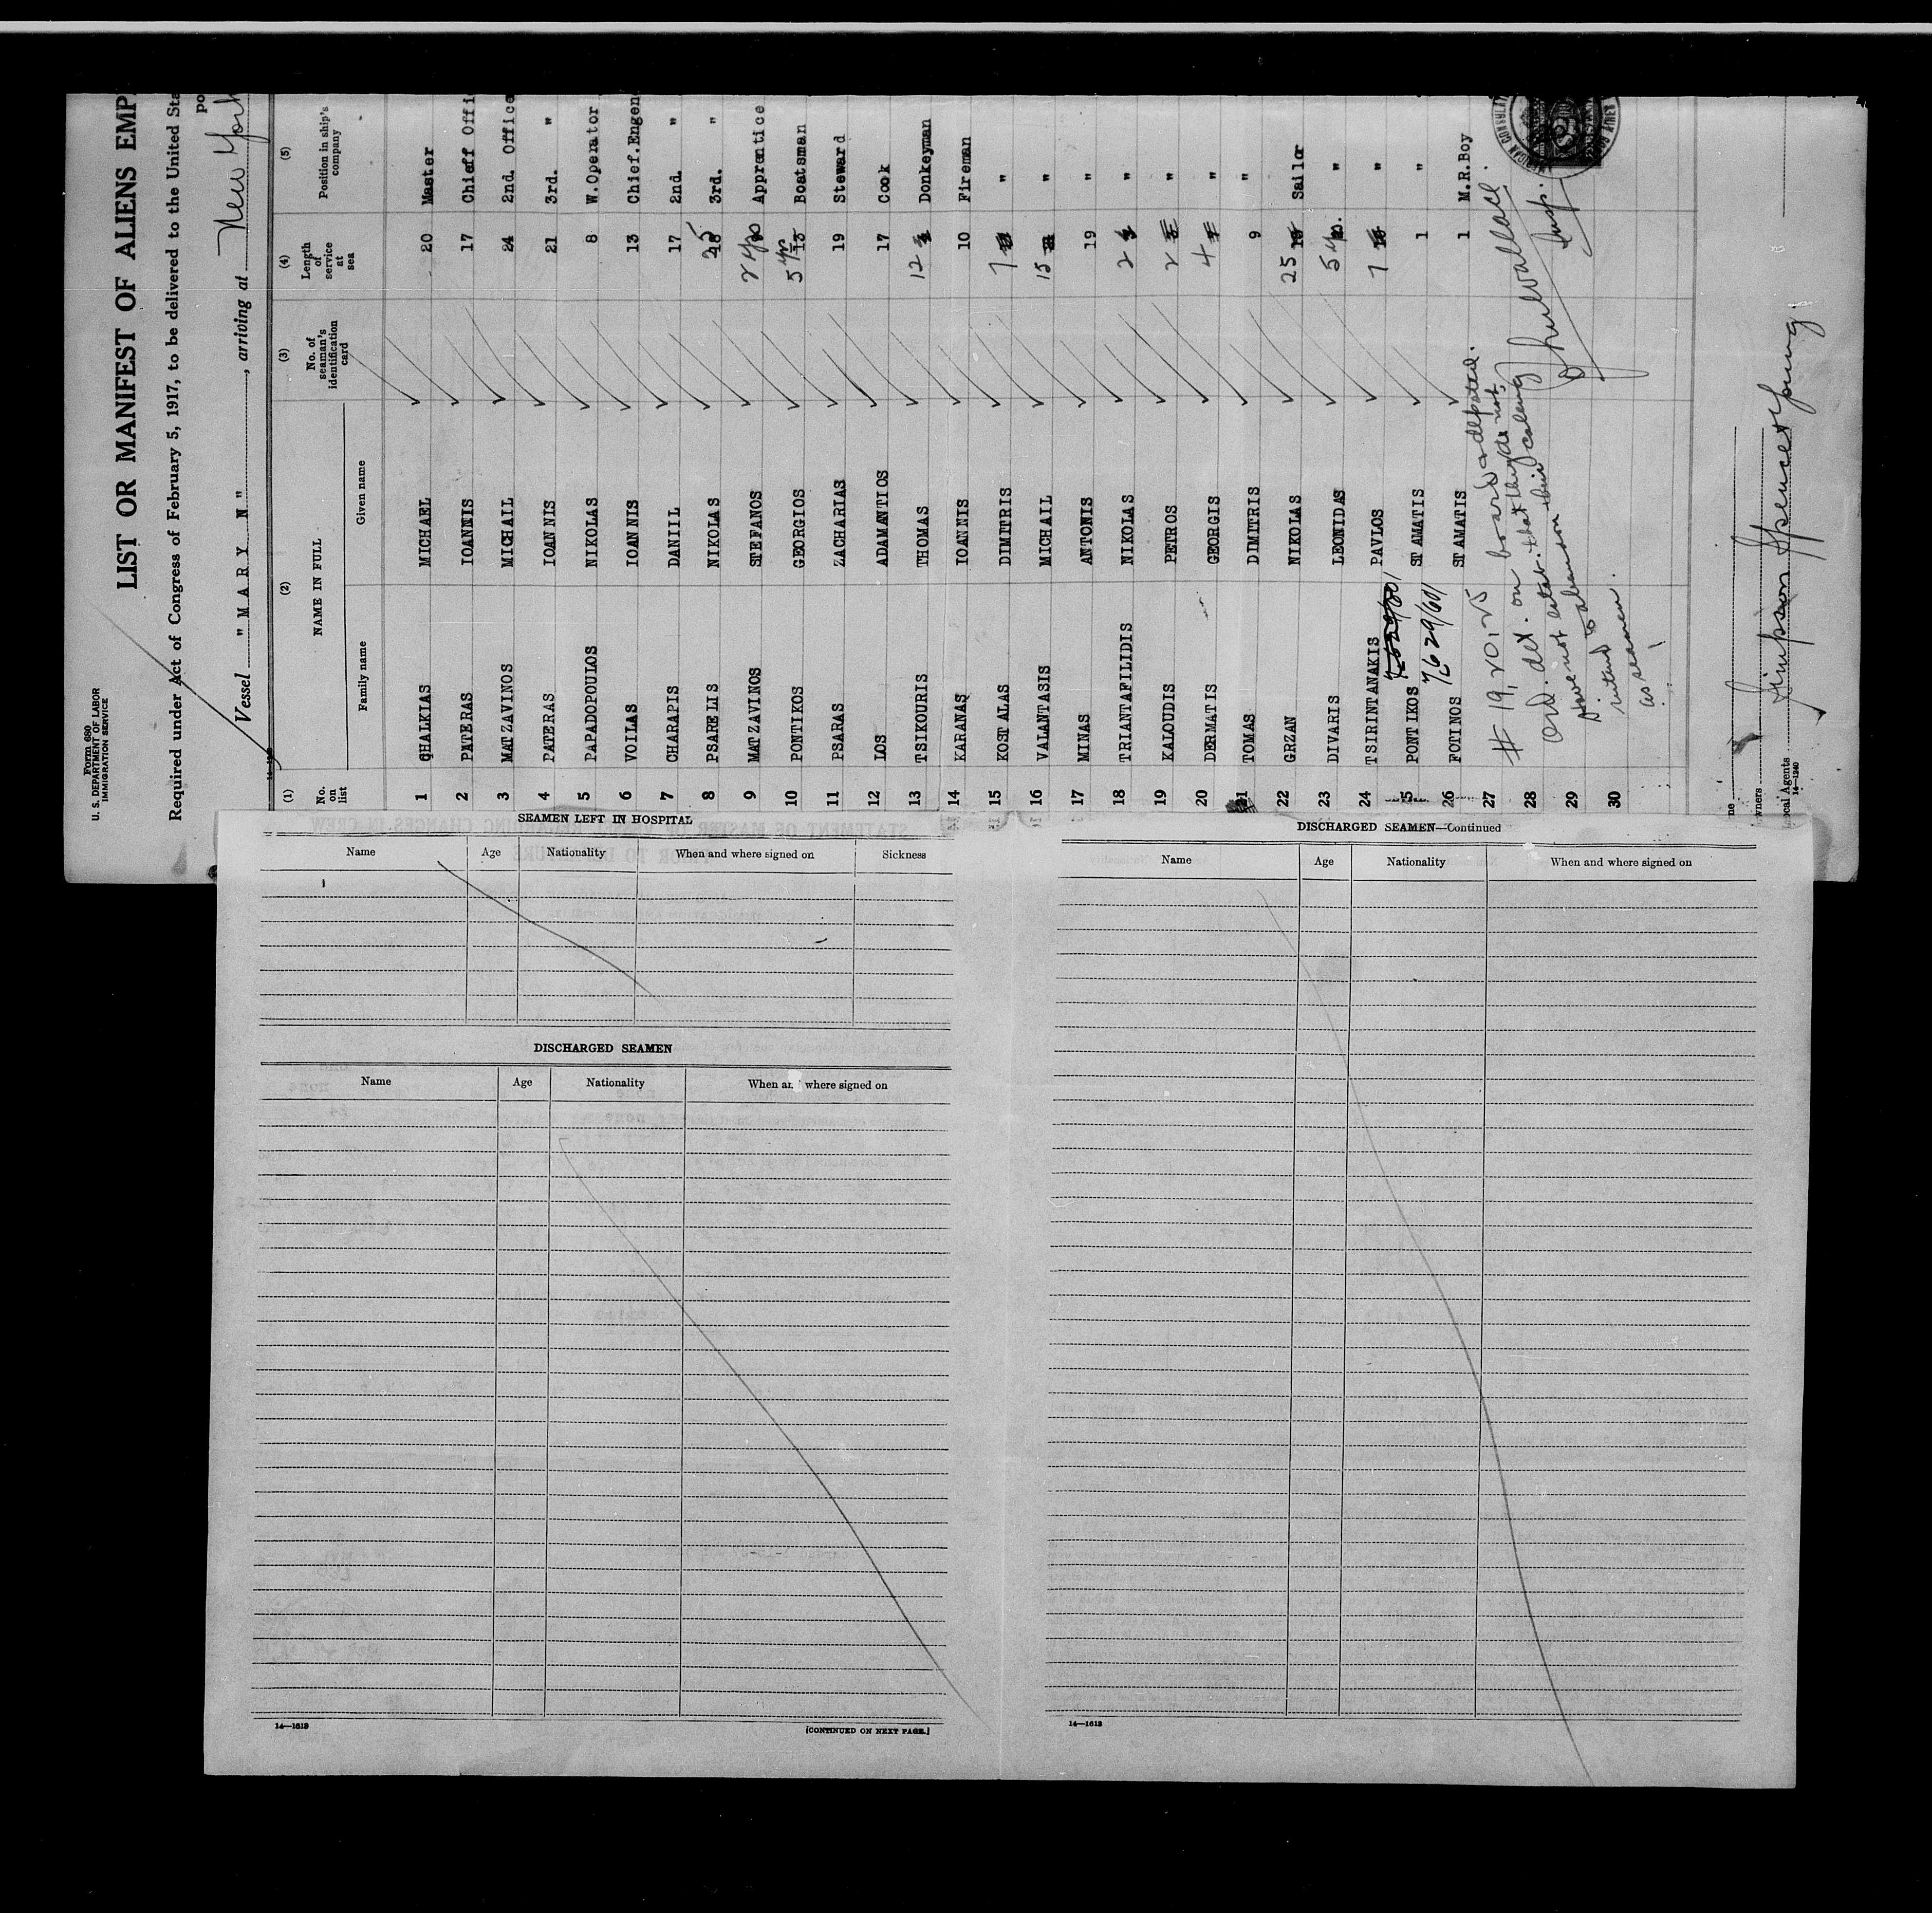 Form 680
U. S. DEPARTMENT OF LABOR
IMMIGRATION SERVICE
LIST OR MANIFEST OF ALIENS EMP
Required under Act of Congress of February 5, 1917, to be delivered to the United Sta
po
Vessel "MARY N", arriving at New York
(1) (2) (3) (4) (5)
No. on list NAME IN FULL No. of seaman's identification card Length of service at sea Position in ship's company
Family name Given name
1 CHALKIAS MICHAEL 20 Master
2 PATERAS IOANNIS 17 Chieff Offi
3 MATZAVINOS MICHAIL 24 2nd. Office
4 PATERAS IOANNIS 21 3rd. "
5 PAPADOPOULOS NIKOLAS 8 W.Operator
6 VOILAS IOANNIS 13 Chief.Engen
7 CHARAPIS DANIIL 17 2nd. "
8 PSARELIS NIKOLAS 5 3rd. "
9 MATZAVINOS STEFANOS 2 yrs Apprentice
10 PONTIKOS GEORGIOS 5 yrs 13 Boatsman
11 PSARAS ZACHARIAS 19 Steward
12 LOS ADAMANTIOS 17 Cook
13 TSIKOURIS THOMAS 12 Donkeyman
14 KARANAS IOANNIS 10 Fireman
15 KOSTALAS DIMITRIS 7 "
16 VALANTASIS MICHAIL 15 "
17 MINAS ANTONIS 19 "
18 TRIANTAFILIDIS NIKOLAS 2 "
19 KALOUDIS PETROS 2 "
20 DERMATIS GEORGIS 4 "
21 TOMAS DIMITRIS 9 "
22 GRZAN NIKOLAS 25 Sailor
23 DIVARIS LEONIDAS 5 "
24 TSIRINTANAKIS PAVLOS 7 "
25 PONTIKOS STAMATIS 1 "
26 FOTINOS STAMATIS 1 M.R.Boy
27
28
29
30
7629/601
# 19, 20, 25
Ord. det. on board & deported.
Have not estab. that they do not
intend to abandon their calling
as seamen.
Insp.
wners
Simpson Spence & Young.
ocal Agents
14—1240
SEAMEN LEFT IN HOSPITAL
Name Age Nationality When and where signed on Sickness
DISCHARGED SEAMEN
Name Age Nationality When and where signed on
14—1613
[CONTINUED ON NEXT PAGE.]
DISCHARGED SEAMEN—Continued
Name Age Nationality When and where signed on
14—1613